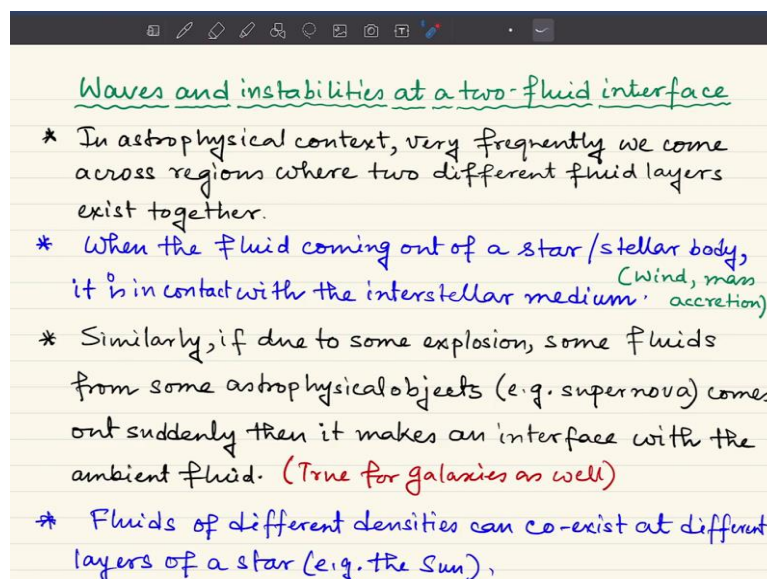 Waves and instabilities at a two-fluid interface
* In astrophysical context, very frequently we come
across regions where two different fluid layers
exist together.
* When the fluid coming out of a star/stellar body,
it is in contact with the interstellar medium. (Wind, mass
accretion)
* Similarly, if due to some explosion, some fluids
from some astrophysical objects (e.g. supernova) comes
out suddenly then it makes an interface with the
ambient fluid. (True for galaxies as well)
* Fluids of different densities can co-exist at different
layers of a star (e.g. the Sun).